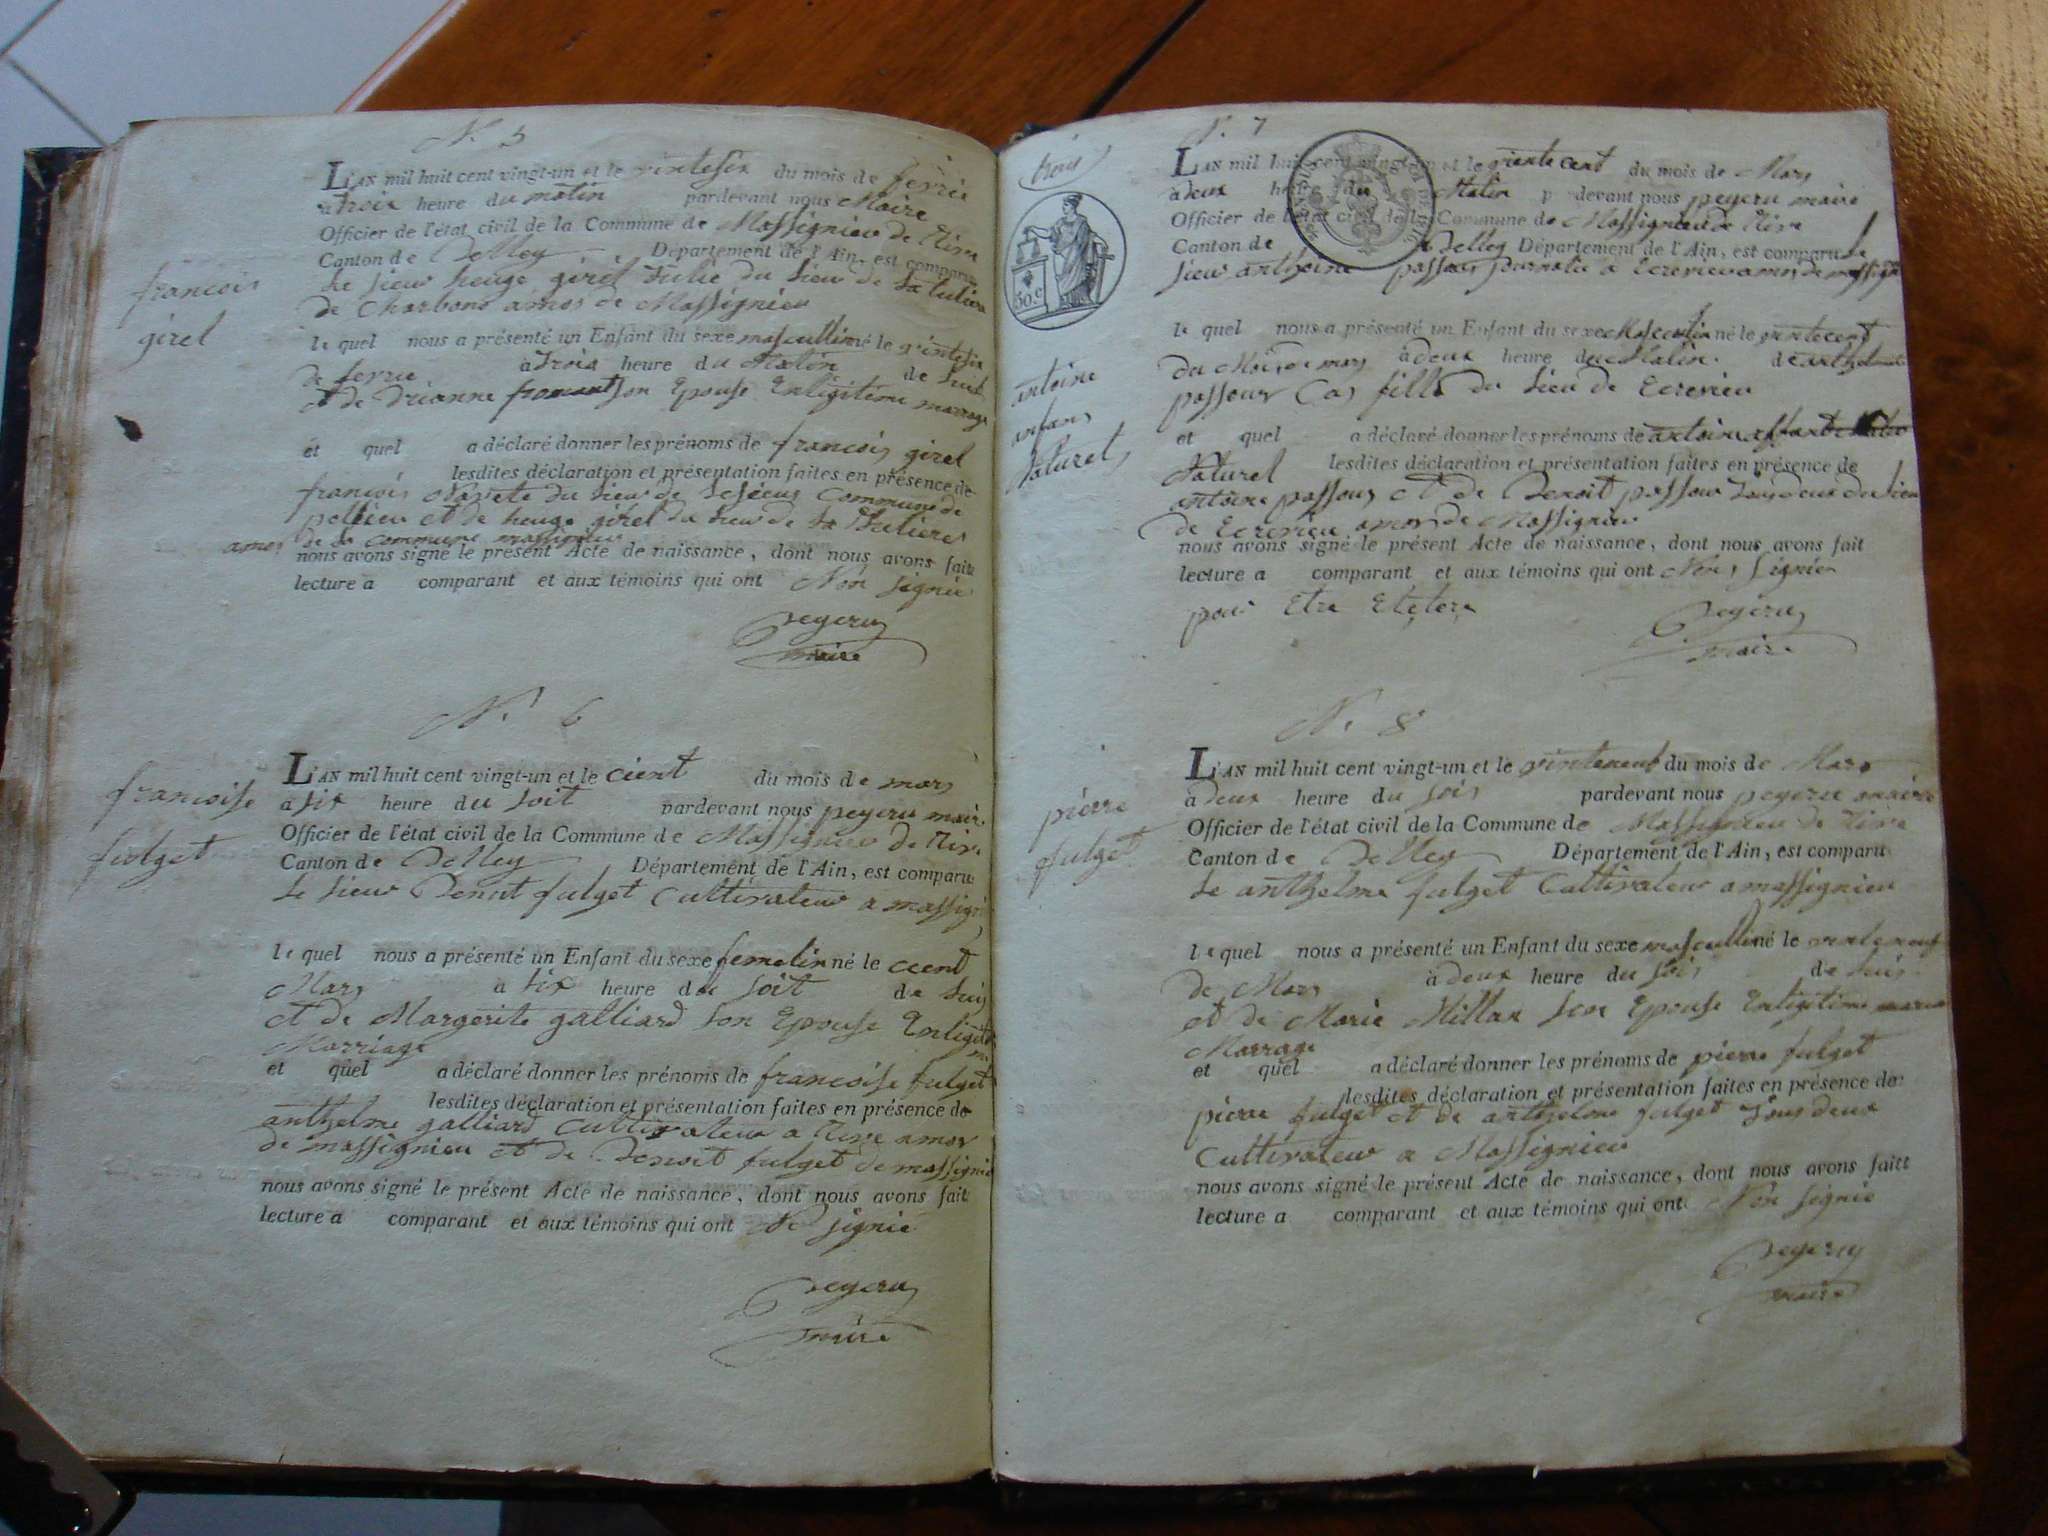 N. 5
L'AN mil huit cent vingt-un et le vintesix du mois de fevrie
a trois heure du matin pardevant nous Maire
Officier de l'état civil de la Commune de Massignieu de Rive
Canton de Belley Département de l'Ain, est comparu
le sieur girel du lieu de
de Charbono amos de Massignieu
francois
girel
le quel nous a présenté un Enfant du sexe mascullin né le vintesix
de fevrie à trois heure du Matin de luis
et de fromant son Epouse Enligitime marrage
et quel a déclaré donner les prénoms de francois girel
lesdites déclaration et présentation faites en présence de
francois du lieu de Commune de
pollieu et de girel du lieu de
amos de la Commune massignieu
nous avons signé le présent Acte de naissance, dont nous avons fait
lecture a comparant et aux témoins qui ont Non signie
peyeru
maire
N. 6
L'AN mil huit cent vingt-un et le cient du mois de mars
à six heure du soit pardevant nous peyeru maire
Officier de l'état civil de la Commune de Massignieu de Rive
Canton de Belley Département de l'Ain, est comparu
le sieur Benoit fulget Cultivateur a massignieu
francoise
fulget
le quel nous a présenté un Enfant du sexe femelin né le cient
Mars à six heure du soit de luis
et de Margerite galliard son Epouse Enligitime
Marriage
et quel a déclaré donner les prénoms de francoise fulget
lesdites déclaration et présentation faites en présence de
anthelme galliard Cultivateur a Rive amos
de massignieu et de Benoit fulget de massignieu
nous avons signé le présent Acte de naissance, dont nous avons fait
lecture a comparant et aux témoins qui ont Ne signie
peyeru
maire
trois
30.c
N. 7
L'AN mil huit cent vingt-un et le vinte cent du mois de Mars
à deux heure du Matin pardevant nous peyeru maire
Officier de l'état civil de la Commune de Massignieu de Rive
Canton de Belley Département de l'Ain, est comparu le
sieur anthoine passour journalie a Ecrevieu amos de massignieu
le quel nous a présenté un Enfant du sexe Mascculin né le vinte cent
du Mois de mars à deux heure du Matin de
passour sas fille du lieu de Ecrevieu
antoine
anfans
Naturel
et quel a déclaré donner les prénoms de antoine
Naturel lesdites déclaration et présentation faites en présence de
antoine passour et de Benoit passour tous deux du lieu
de Ecrevieu amos de Massignieu
nous avons signé le présent Acte de naissance, dont nous avons fait
lecture a comparant et aux témoins qui ont Non signier
pour Etre
peyeru
maire
N. 8
L'AN mil huit cent vingt-un et le vinteneuf du mois de Mars
à deux heure du soir pardevant nous peyeru maire
Officier de l'état civil de la Commune de Massignieu de Rive
Canton de Belley Département de l'Ain, est comparu
le anthelme fulget Cultivateur a massignieu
pierre
fulget
le quel nous a présenté un Enfant du sexe mascullin né le vinteneuf
de Mars à deux heure du soir de luis
et de Marie Millan son Epouse Enligitime
Marrage
et quel a déclaré donner les prénoms de pierre fulget
lesdites déclaration et présentation faites en présence de
pierre fulget et de anthelme fulget tous deux
Cultivateur a Massignieu
nous avons signé le présent Acte de naissance, dont nous avons fait
lecture a comparant et aux témoins qui ont Non signie
peyeru
maire